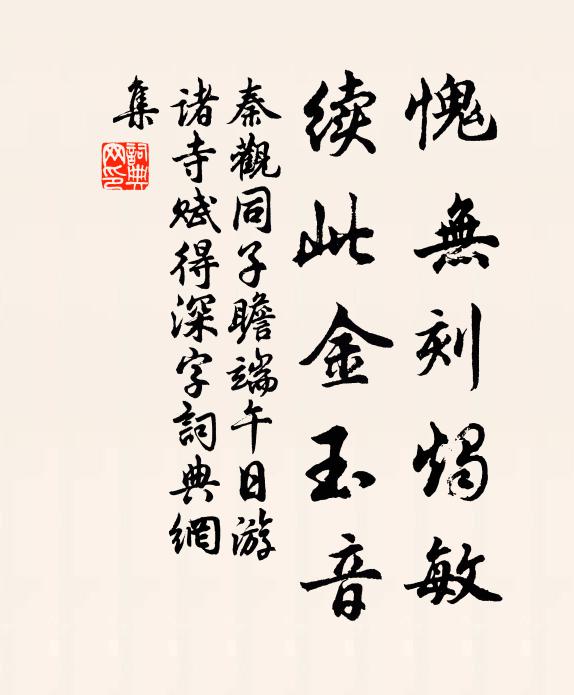 愧無刻燭敏
续此金玉音
秦觀同子瞻端午日游
诸寺赋得深字詞典網
集
詞典網印